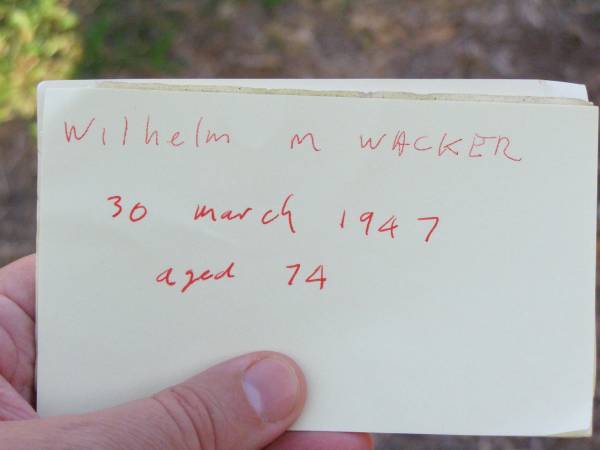 Wilhelm M WACKER
30 march 1947
aged 74